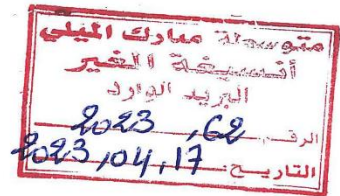 متوسطة مبارك الميلي
أنسيغة الغير
البريد الوارد
الرقم 62 / 2023
التاريخ: 2023/04/17